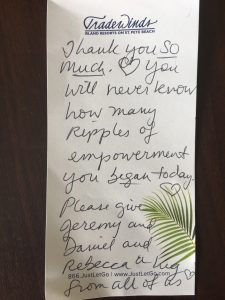 TradeWinds
ISLAND RESORTS ON ST. PETE BEACH
Thank you SO
Much. You
will never know
how many
Ripples of
empowerment
you began today
Please give
Jeremy and
Daniel and
Rebecca a hug
from all of us
866.JustLetGo | www.JustLetGo.com